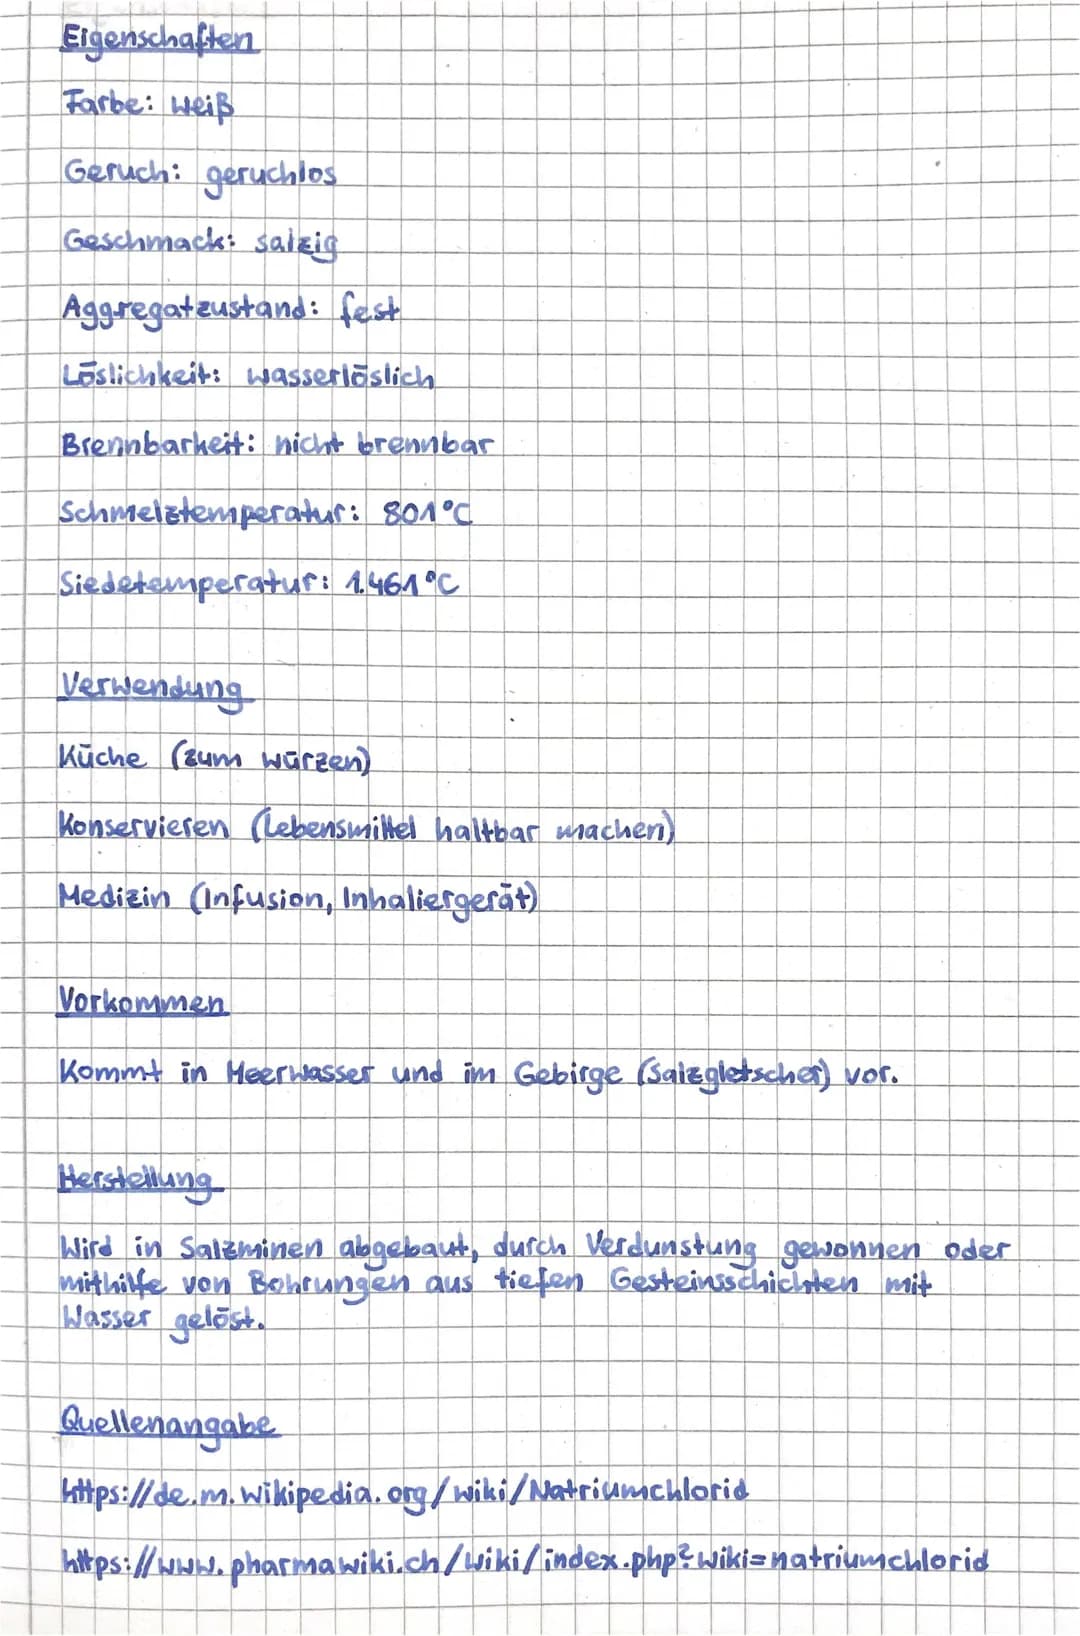 Eigenschaften
Farbe: weiß
Geruch: geruchlos
Geschmack: salzig
Aggregatzustand: fest
Löslichkeit: wasserlöslich
Brennbarkeit: nicht brennbar
Schmelztemperatur: 801°C
Siedetemperatur: 1.461°C
Verwendung
Küche (zum würzen)
Konservieren (Lebensmittel haltbar machen)
Medizin (Infusion, Inhaliergerät)
Vorkommen
Kommt in Meerwasser und im Gebirge (Salzgletscher) vor.
Herstellung
Wird in Salzminen abgebaut, durch Verdunstung gewonnen oder
mithilfe von Bohrungen aus tiefen Gesteinsschichten mit
Wasser gelöst.
Quellenangabe
https://de.m.wikipedia.org/wiki/Natriumchlorid
https://www.pharmawiki.ch/wiki/index.php?wiki=natriumchlorid